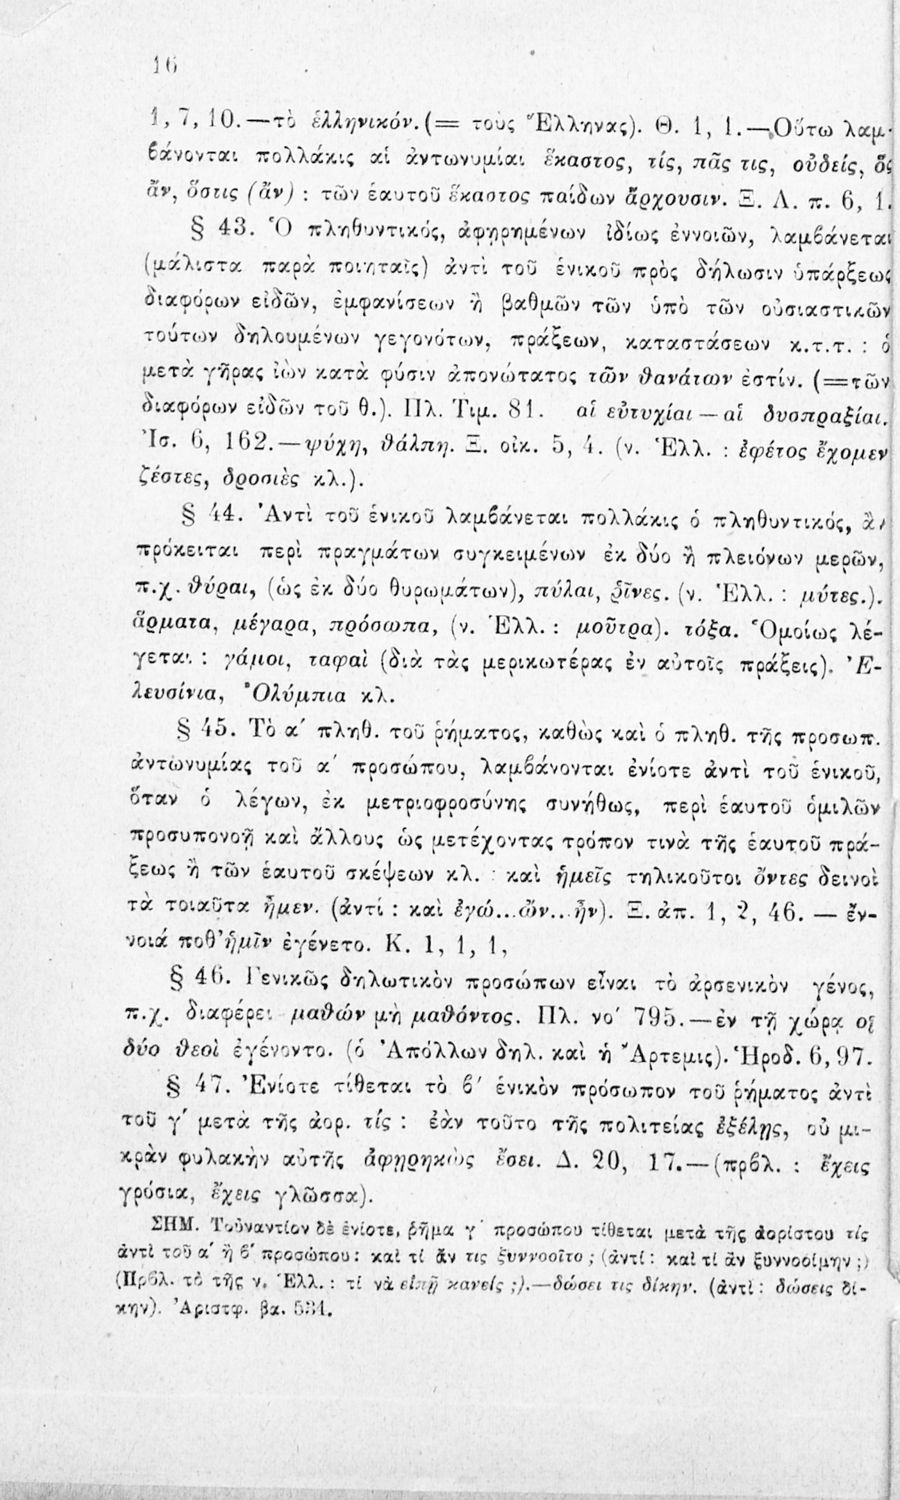 16
1, 7, 10.—τὸ ἑλληνικόν. (= τοὺς Ἕλληνας). Θ. 1, 1.—Οὕτω λαμ-
βάνονται πολλάκις αἱ ἀντωνυμίαι ἕκαστος, τίς, πᾶς τις, οὐδείς, ὃς
ἄν, ὅστις (ἄν) : τῶν ἑαυτοῦ ἕκαστος παίδων ἄρχουσιν. Ξ. Λ. π. 6, 1.
§ 43. Ὁ πληθυντικός, ἀφηρημένων ἰδίως ἐννοιῶν, λαμβάνεται
(μάλιστα παρὰ ποιηταῖς) ἀντὶ τοῦ ἑνικοῦ πρὸς δήλωσιν ὑπάρξεως
διαφόρων εἰδῶν, ἐμφανίσεων ἢ βαθμῶν τῶν ὑπὸ τῶν οὐσιαστικῶν
τούτων δηλουμένων γεγονότων, πράξεων, καταστάσεων κ.τ.τ. : ὁ
μετὰ γῆρας ἰὼν κατὰ φύσιν ἀπονώτατος τῶν θανάτων ἐστίν. (=τῶν
διαφόρων εἰδῶν τοῦ θ.). Πλ. Τιμ. 81. αἱ εὐτυχίαι — αἱ δυσπραξίαι.
Ἰσ. 6, 162.—ψύχη, θάλπη. Ξ. οἰκ. 5, 4. (ν. Ἑλλ. : ἐφέτος ἔχομεν
ζέστες, δροσιὲς κλ.).
§ 44. Ἀντὶ τοῦ ἑνικοῦ λαμβάνεται πολλάκις ὁ πληθυντικός, ἂν
πρόκειται περὶ πραγμάτων συγκειμένων ἐκ δύο ἢ πλειόνων μερῶν,
π.χ. θύραι, (ὡς ἐκ δύο θυρωμάτων), πύλαι, ῥῖνες. (ν. Ἑλλ. : μύτες.).
ἅρματα, μέγαρα, πρόσωπα, (ν. Ἑλλ. : μοῦτρα). τόξα. Ὁμοίως λέ-
γεται : γάμοι, ταφαὶ (διὰ τὰς μερικωτέρας ἐν αὐτοῖς πράξεις). Ἐ-
λευσίνια, Ὀλύμπια κλ.
§ 45. Τὸ α΄ πληθ. τοῦ ῥήματος, καθὼς καὶ ὁ πληθ. τῆς προσωπ.
ἀντωνυμίας τοῦ α΄ προσώπου, λαμβάνονται ἐνίοτε ἀντὶ τοῦ ἑνικοῦ,
ὅταν ὁ λέγων, ἐκ μετριοφροσύνης συνήθως, περὶ ἑαυτοῦ ὁμιλῶν
προσυπονοῇ καὶ ἄλλους ὡς μετέχοντας τρόπον τινὰ τῆς ἑαυτοῦ πρά-
ξεως ἢ τῶν ἑαυτοῦ σκέψεων κλ. : καὶ ἡμεῖς τηλικοῦτοι ὄντες δεινοὶ
τὰ τοιαῦτα ἦμεν. (ἀντί : καὶ ἐγώ...ὤν...ἦν). Ξ. ἀπ. 1, 2, 46. — ἔν-
νοιά ποθ' ἡμῖν ἐγένετο. Κ. 1, 1, 1,
§ 46. Γενικῶς δηλωτικὸν προσώπων εἶναι τὸ ἀρσενικὸν γένος,
π.χ. διαφέρει μαθών μὴ μαθόντος. Πλ. νο΄ 795.—ἐν τῇ χώρᾳ οἱ
δύο θεοὶ ἐγένοντο. (ὁ Ἀπόλλων δηλ. καὶ ἡ Ἄρτεμις). Ἡροδ. 6, 97.
§ 47. Ἐνίοτε τίθεται τὸ β΄ ἑνικὸν πρόσωπον τοῦ ῥήματος ἀντὶ
τοῦ γ΄ μετὰ τῆς ἀορ. τίς : ἐὰν τοῦτο τῆς πολιτείας ἐξέλῃς, οὐ μι-
κρὰν φυλακὴν αὐτῆς ἀφῃρηκὼς ἔσει. Δ. 20, 17.—(πρβλ. : ἔχεις
γρόσια, ἔχεις γλῶσσα).
ΣΗΜ. Τοὐναντίον δὲ ἐνίοτε, ῥῆμα γ΄ προσώπου τίθεται μετὰ τῆς ἀορίστου τίς
ἀντὶ τοῦ α΄ ἢ β΄ προσώπου : καὶ τί ἄν τις ξυννοοῖτο ; (ἀντί : καὶ τί ἂν ξυννοοίμην ;)
(Πρβλ. τὸ τῆς ν. Ἑλλ. : τί νὰ εἰπῇ κανείς ;).—δώσει τις δίκην. (ἀντί : δώσεις δί-
κην). Ἀριστφ. βα. 534.